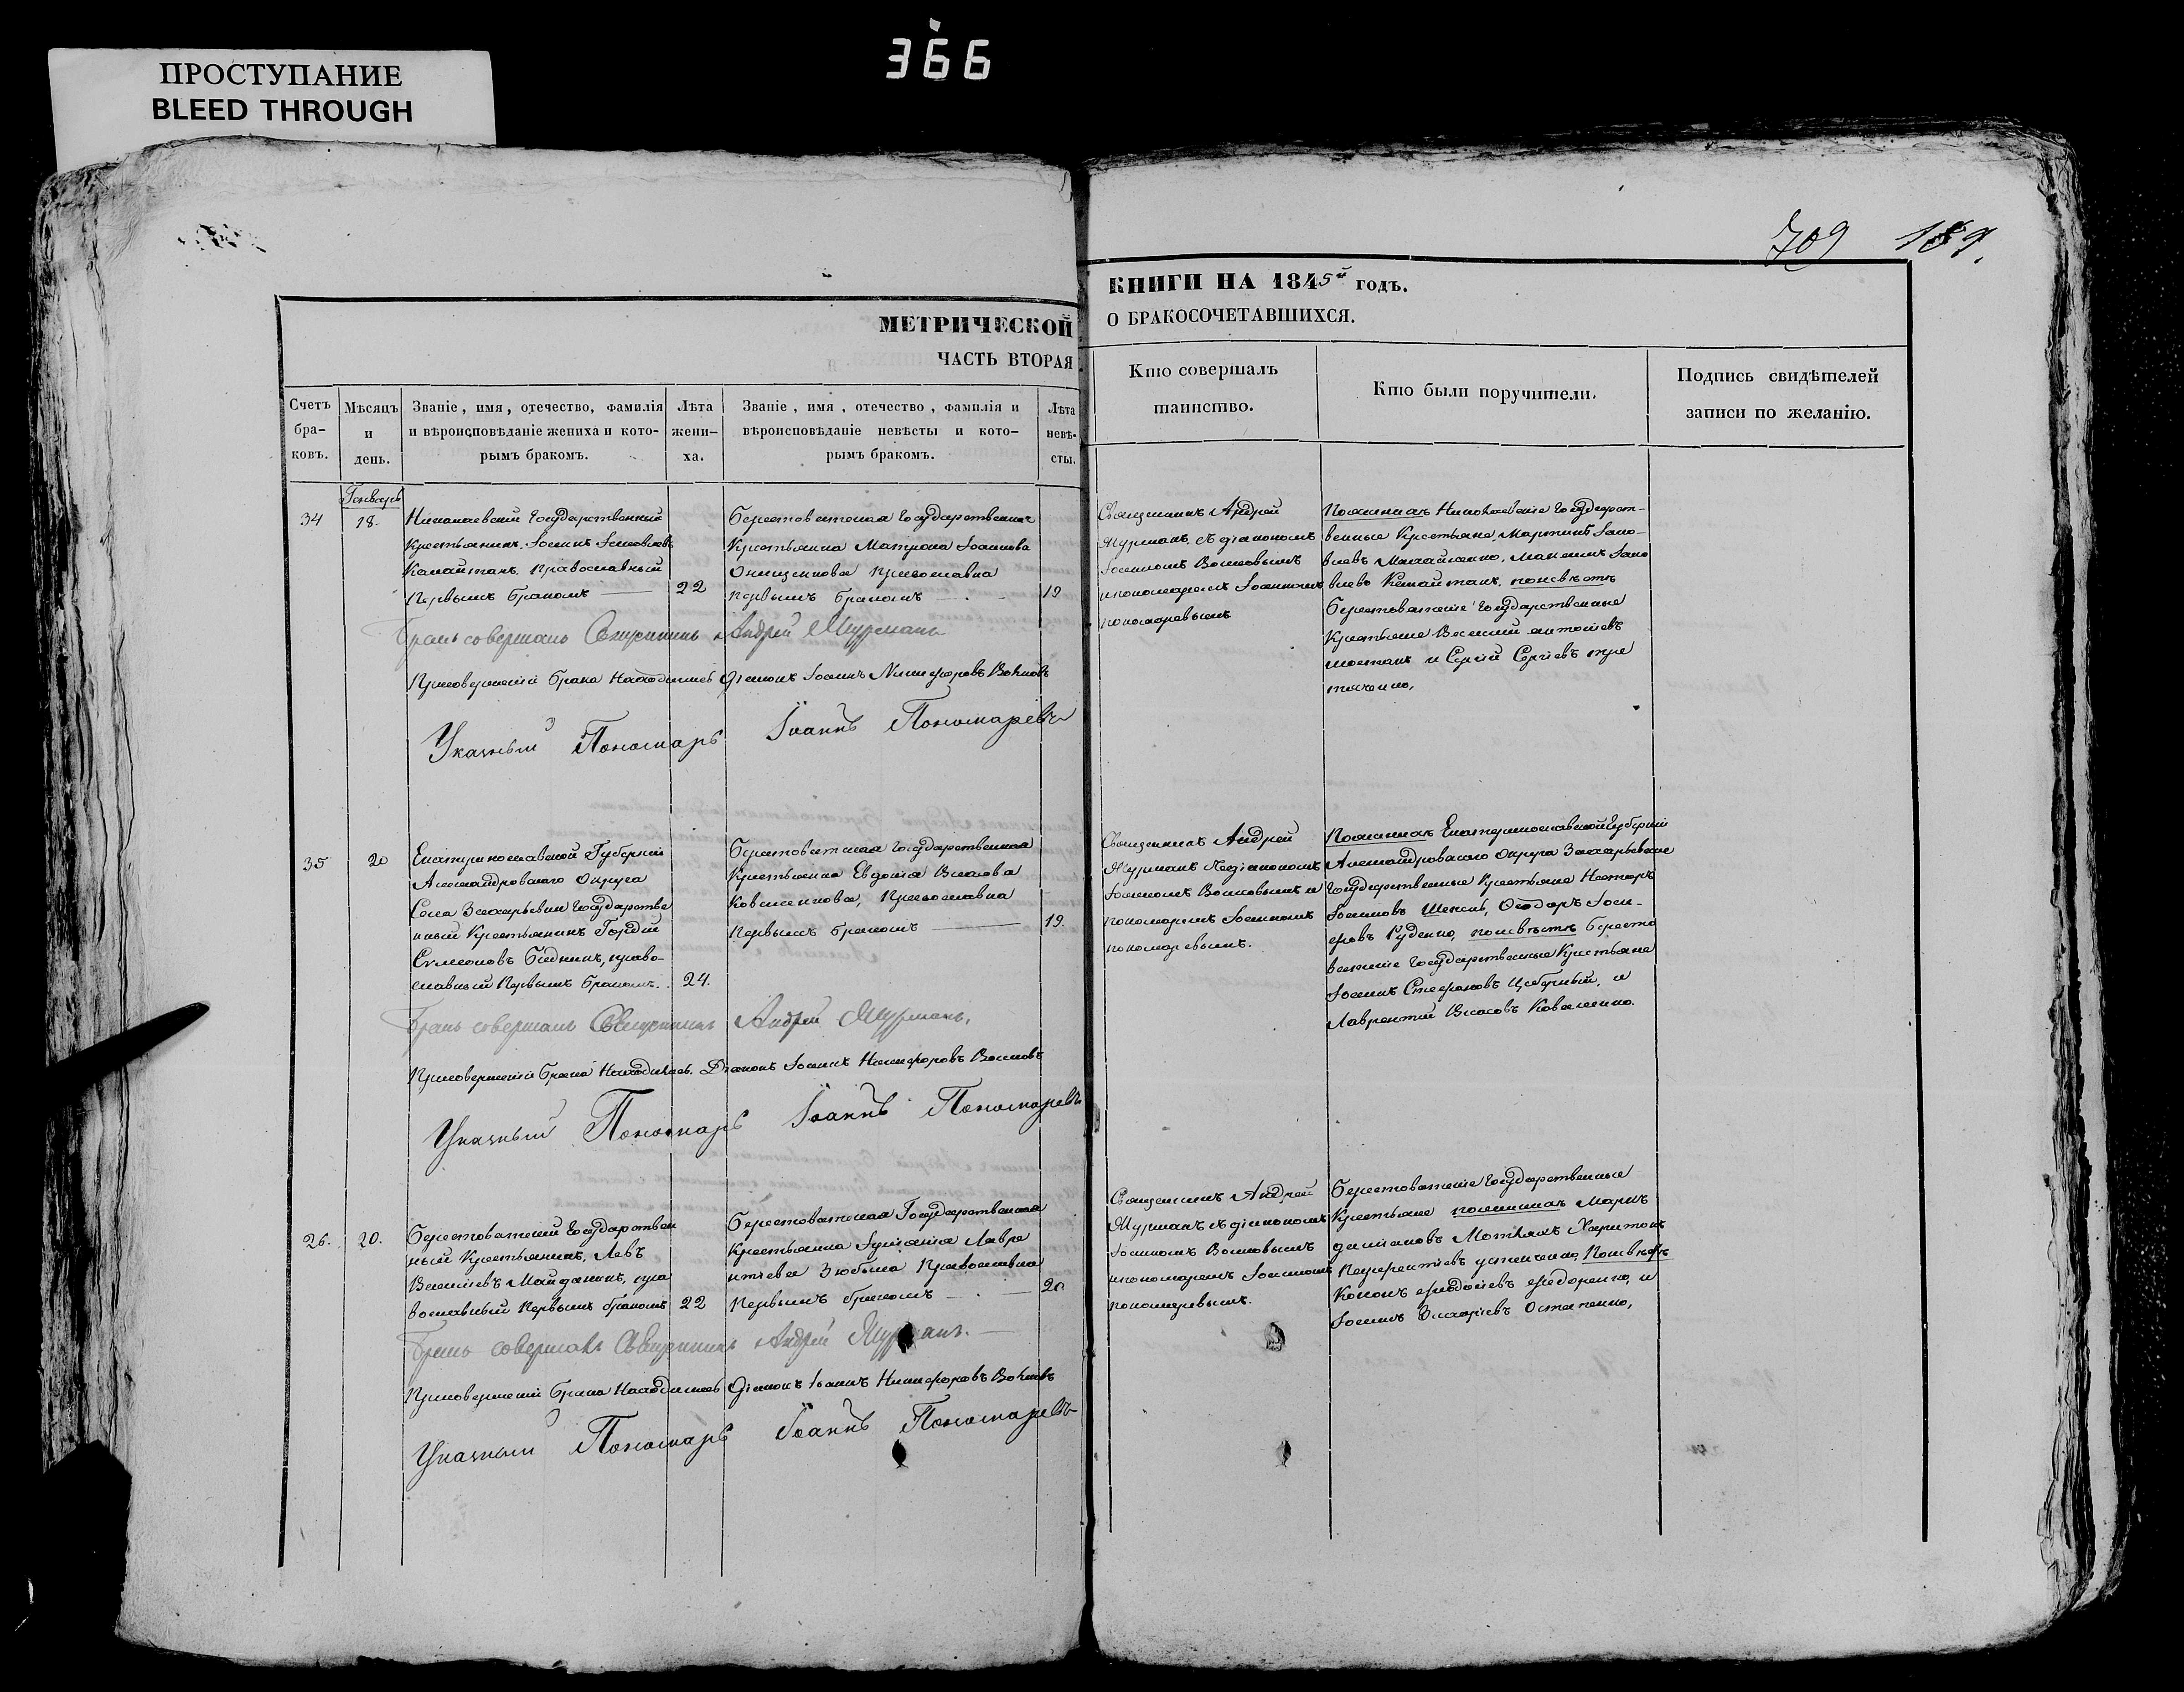 ПРОСТУПАНИЕ
BLEED THROUGH
366
709 189.
МЕТРИЧЕСКОЙ
ЧАСТЬ ВТОРАЯ
КНИГИ НА 1845й годъ.
О БРАКОСОЧЕТАВШИХСЯ.
Счетъ бра-ковъ.
Мѣсяцъ и день.
Званіе, имя, отечество, фамилія
и вѣроисповѣданіе жениха и кото-
рымъ бракомъ.
Лѣта жени-ха.
Званіе, имя, отечество, фамилія и
вѣроисповѣданіе невѣсты и кото-
рымъ бракомъ.
Лѣта невѣ-сты.
Кто совершалъ
таинство.
Кто были поручители.
Подпись свидѣтелей
записи по желанію.
Генварь
34
18.
Николаевскій Государственный
Крестьянинъ Іоаннъ
Православный
Первымъ бракомъ
22
Берестоватская Государственная
Крестьянка Матрона Іоаннова
Православна
Первымъ бракомъ
19
Священникъ Андрей
Журманъ съ діакономъ
Іоанномъ Волковымъ
и пономаремъ Іоанномъ
пономаревымъ
Государст-
венные Крестьяне Мартинъ
понѣвѣстѣ
Государственные
Крестьяне Василій
и Сергій Сергіевъ
Бракъ совершалъ Священникъ Андрей Журманъ
Присовершеніи брака Находился Діаконъ Іоаннъ Никифоровъ Волковъ
Указный Пономарь Іоаннъ Пономаревъ
35
20
Екатеринославской Губерніи
Александровскаго Округа
Села Государстве
нный Крестьянинъ Гордій
Сѵмеоновъ Бѣдникъ, право-
славный Первымъ бракомъ.
24.
Берестоватская Государственная
Крестьянка Евдокія Власова
Коваленкова, Православна
Первымъ бракомъ
19.
Священникъ Андрей
Журманъ съ діакономъ
Іоанномъ Волковымъ и
пономаремъ Іоанномъ
пономаревымъ.
Екатеринославской Губерніи
Александровскаго Округа
Государственные Крестьяне Несторъ
Іоанновъ
Руденко, понѣвѣстѣ Бересто
ватскіе Государственные Крестьяне
Іоаннъ Стефановъ и
Лаврентій Власовъ Коваленко.
Бракъ совершалъ Священникъ Андрей Журманъ.
Присовершеніи брака Находился. Діаконъ Іоаннъ Никифоровъ Волковъ
Указный Пономарь Іоаннъ Пономаревъ
26.
20.
Берестоватскій Государствен
ный Крестьянинъ, Левъ
Василіевъ Майданикъ, пра
вославный Первымъ бракомъ
22
Берестоватская Государственная
Крестьянка Лавре
нтіева Православна
Первымъ бракомъ
20
Священникъ Андрей
Журманъ съ діакономъ
Іоанномъ Волковымъ
и пономаремъ Іоанномъ
пономаревымъ.
Берестоватскіе Государственные
Крестьяне Маркъ
Харитонъ
Кононъ и
Іоаннъ Захаріевъ Остапенко,
Бракъ совершалъ Священникъ Андрей Журманъ.
Присовершеніи брака Находился Діаконъ Іоаннъ Никифоровъ Волковъ
Указный Пономарь Іоаннъ Пономаревъ